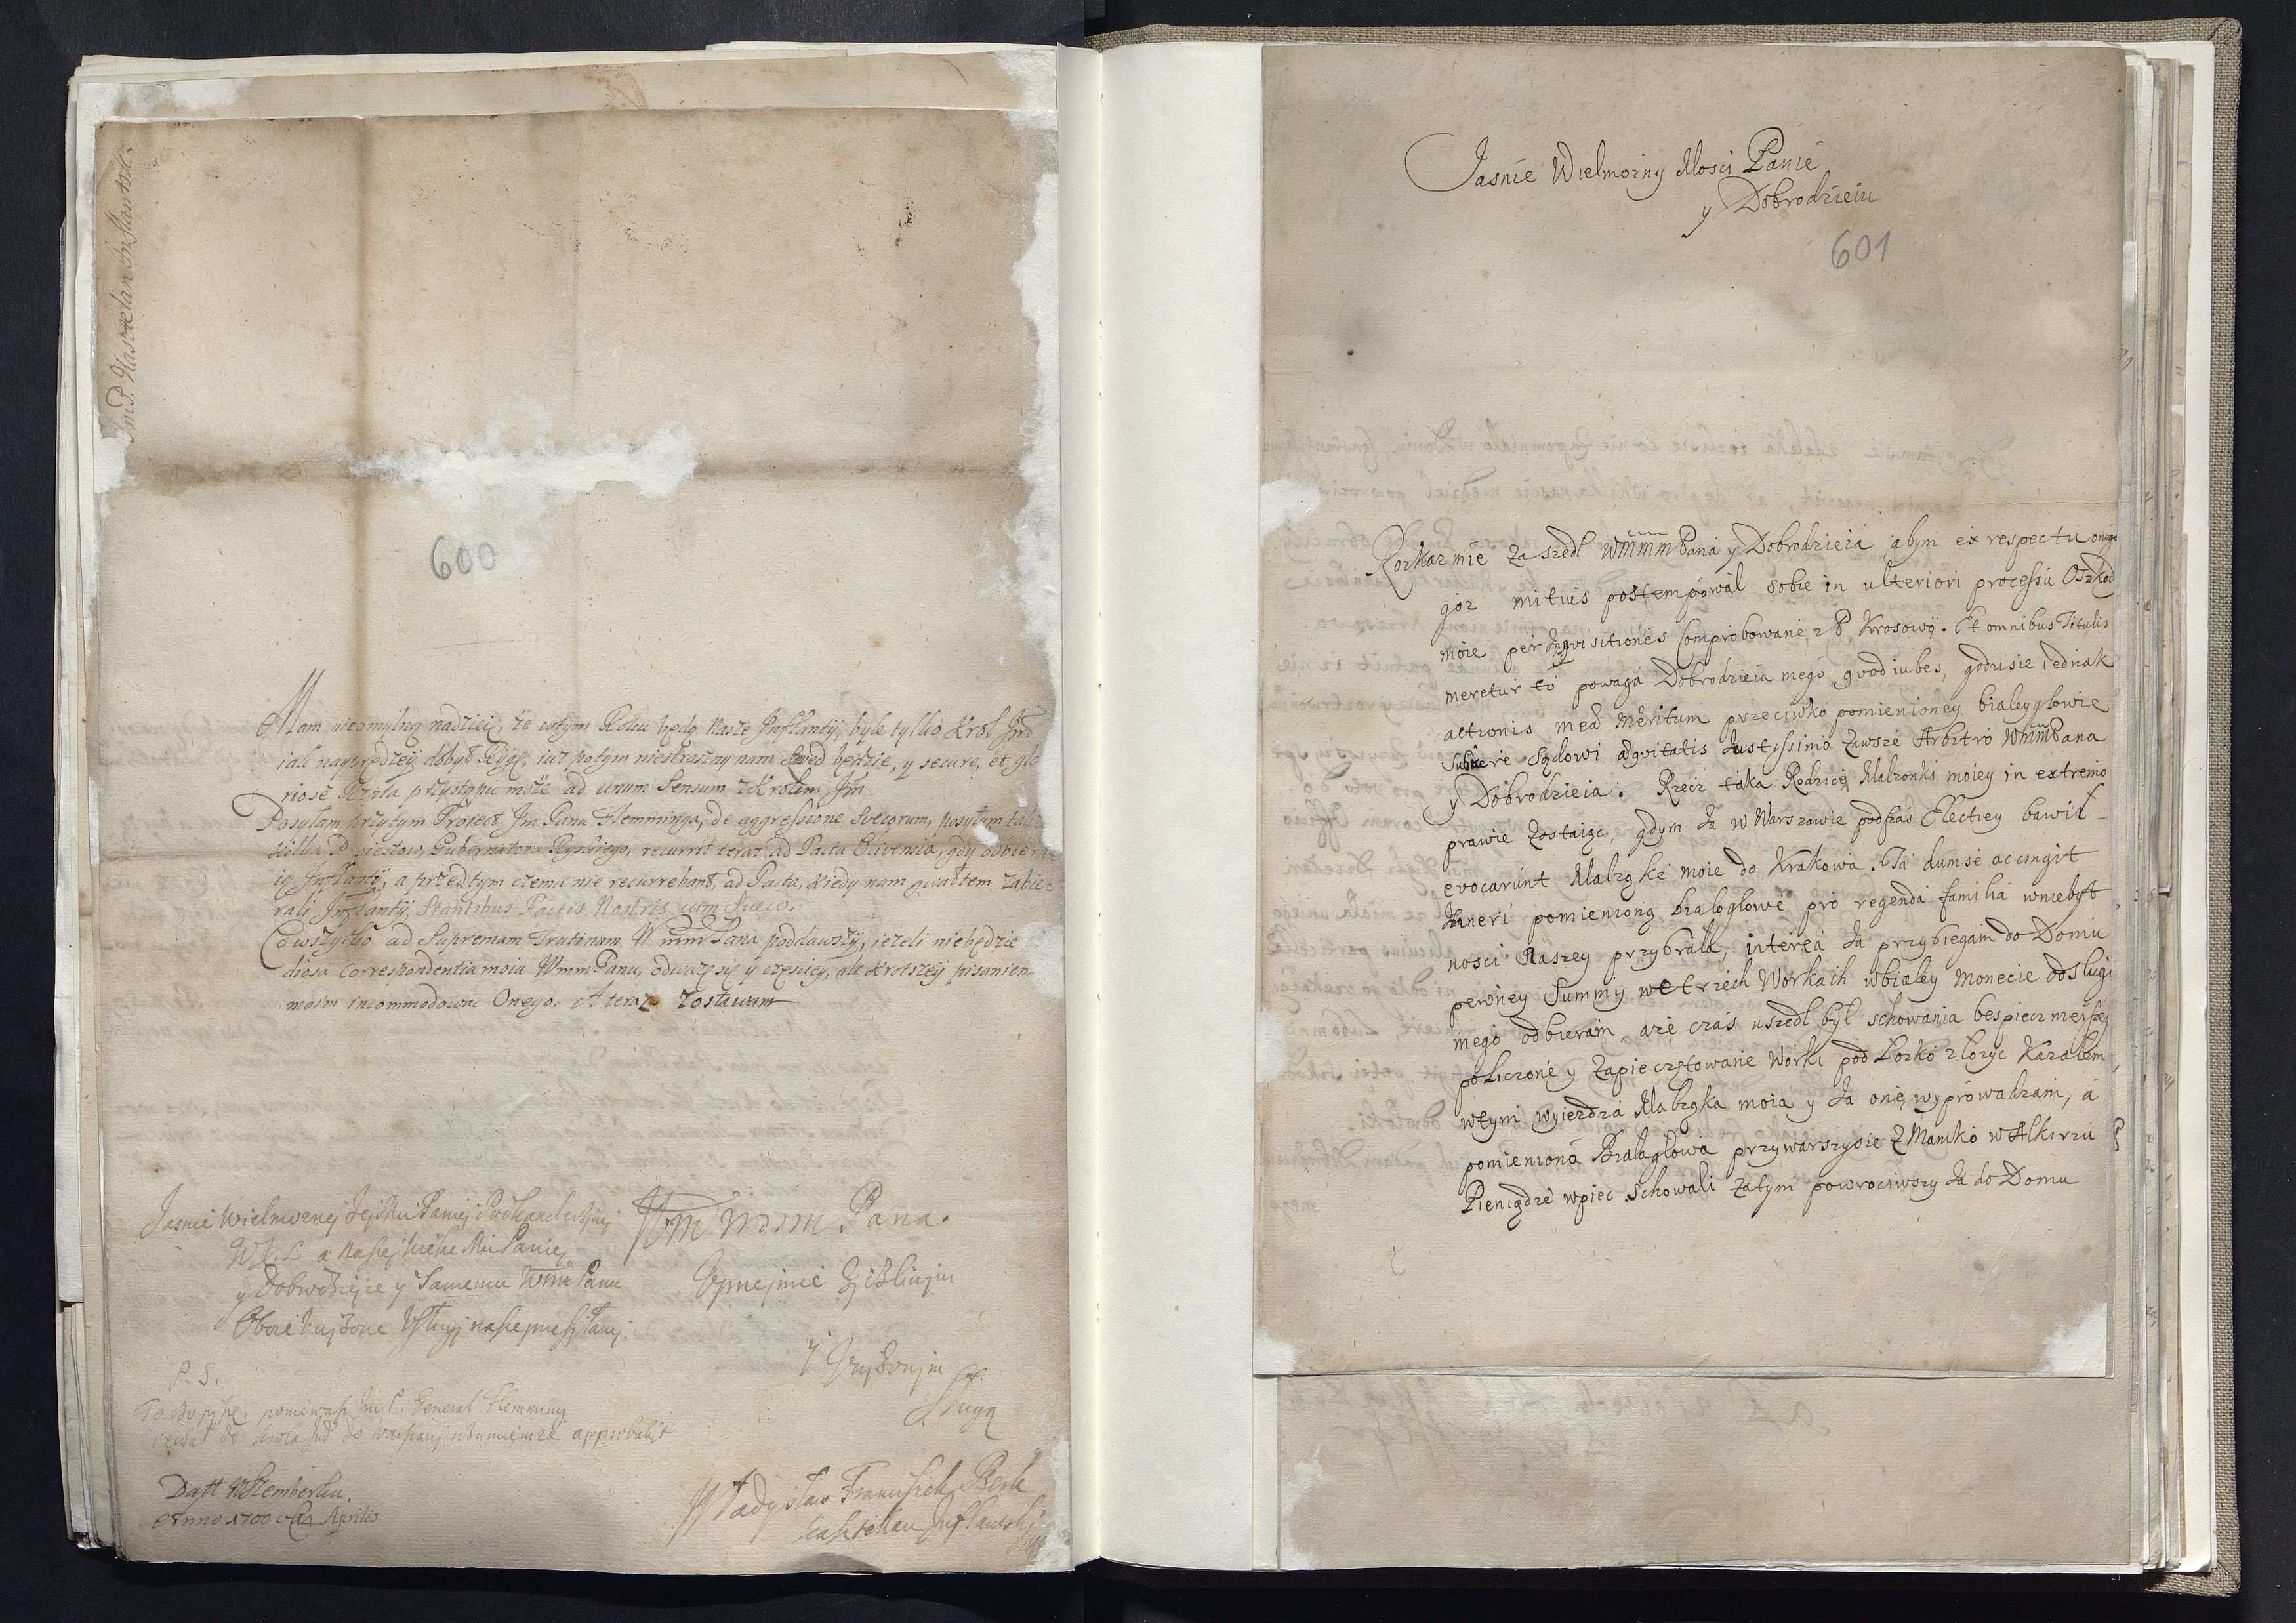 Jm P. Kasztelan Inflantski.
600
Mam nieomylną nadzieię, że wtym Roku będą Nasze Inflanty, byle tylko Krol Jmś
iak nayprędzey dobył Rygę, iuż potym niestraszny nam Szwed będzie, y secure, et glo
riose Rzplta przystąpic może ad unum Sensum z Krolem Jm
Posyłam przytym Proiect Jm Pana Flemminga, de aggressione Svecorum, posyłam
Gubernatora Ryskiego, recurrit teraz ad Pacta Olivensia, gdy odbiera
ią Inflanty, a przedtym czemu nie recurrebant, ad Pacta, kiedy nam gwałtem zabie-
rali Inflanty, Stantibus Pactis Nostris cum Sueco.
Co wszytko ad Supremam Trutinam WmmPana poddawszy, ieżeli niebędzie
diosa Correspondentia moia WmmPanu, odważę się y częsciey, ale krotszey pisaniem
moim incommodowac Onego. A teraz zostawam
Jasnie Wielmoznej Jej Mci Paniej Podkanclerzynej
WXL a Naszej Mci Paniej
y Dobrodziejce y Samemu WmmPanu
P. S.
General Flemming
approbabit
Datt w Kemberku
Anno 1700 Aprilis
Wm Mmm Pana
Uprzejmie Zyczliwym
y
Sługą
Władysław Franciszek Berk
Kasztellan Inflantski
Jasnie Wielmozny Mosci Panie
y Dobrodzieiu
601
Rozkaz mie zaszedl WmmmPana y Dobrodzieia abym ex respectu onego
goz mitius postempowal sobie in ulteriori processu Oszkod
moie per Inqvisitiones comprobowanie z P Krosową. Et omnibus Titulis
meretur to powaga Dobrodzieia mego qvod iubes, godzisie iednak
actionis meæ Meritum przeciwko pomienioney bialeyglowie
Sądowi æqvitatis Iustissimo zawsze Arbitro WmmPana
y Dobrodzieia. Rzecz taka Rodzice Malzonki moiey in extremo
prawie zostaiąc, gdym Ja w Warszawie podczas Electiey bawil
evocarunt Malząkę moie do Krakowa. Ta dum se accingit
itineri pomienioną bialoglowę pro regenda familia wniebyt
nosci Naszey przybrala, interea Ja przybiegam do Domu
pewney Summy wetrzech Workach wbialey Monecie odslugi
mego odbieram, aże czas uszedl byl schowania bespiecznieyszey
policzone y zapieczętowanie worki pod Lozko zlozyc Kazalem
wtym wyiezdza Malząka moia y Ja onę wyprowadzam, a
pomieniona Bialaglowa przywarszysie z Mamko w Alkirzu
Pieniądze wpiec schowali zatym powrociwszy Ja do Domu